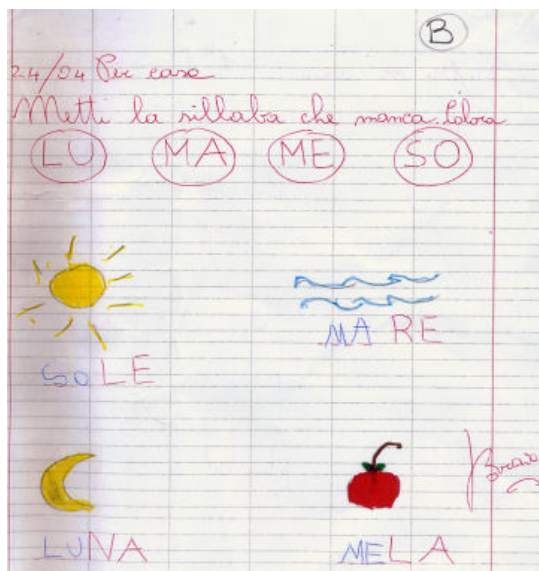 B
24/04 Per casa
Metti la sillaba che manca. Colora
LU MA ME SO
MARE
SOLE
Bravo
LUNA MELA